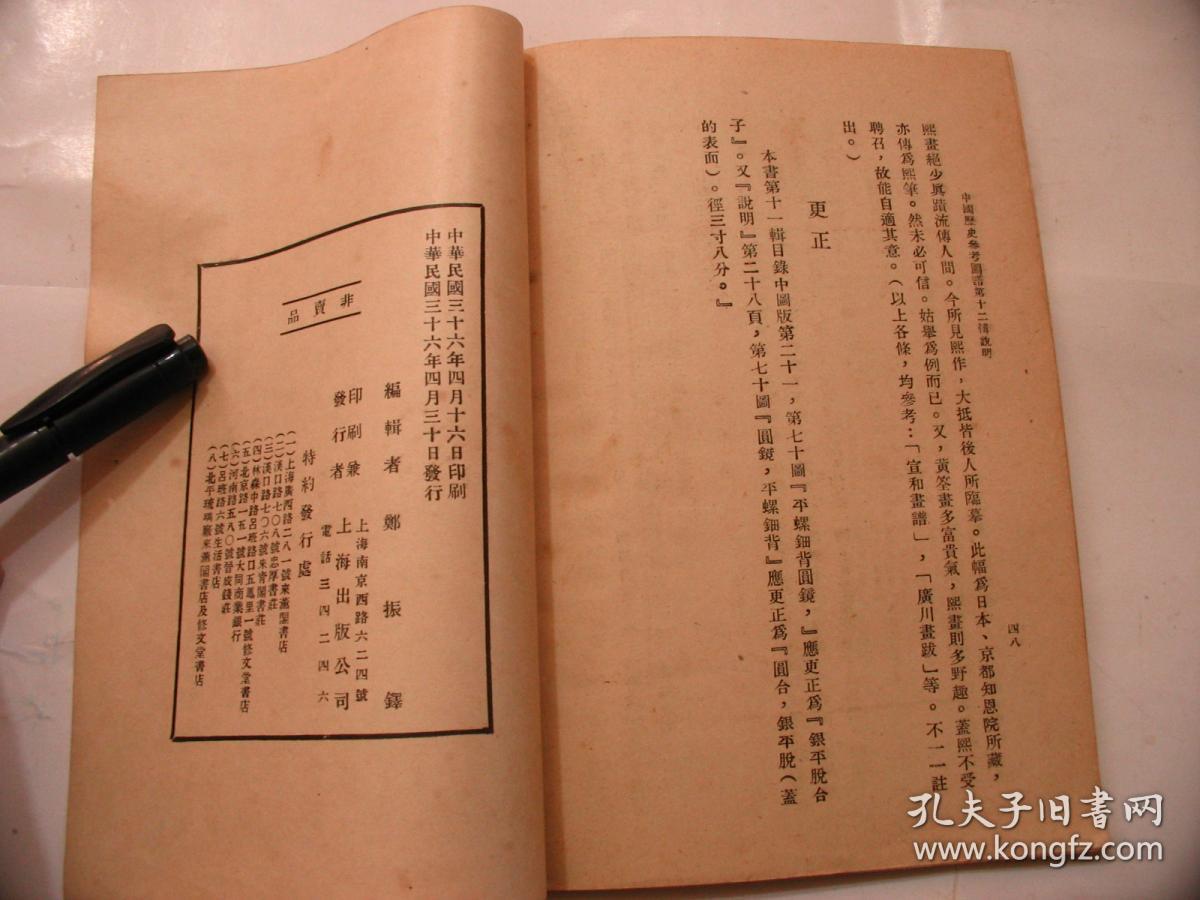 中國歷史參考圖譜第十二輯說明
四八
熙畫絕少眞蹟流傳人間。今所見熙作，大抵皆後人所臨摹。此幅爲日本、京都知恩院所藏，
亦傳爲熙筆。然未必可信。姑舉爲例而已。又，黃筌畫多富貴氣，熙畫則多野趣。蓋熙不受
聘召，故能自適其意。（以上各條，均參考：「宣和畫譜」，「廣川畫跋」等。不一一註
出。）
更正
本書第十一輯目錄中圖版第二十一，第七十圖『平螺鈿背圓鏡，』應更正爲『銀平脫台
子』。又『說明』第二十八頁，第七十圖『圓鏡，平螺鈿背』應更正爲『圓台，銀平脫（蓋
的表面）。徑三寸八分。』
中華民國三十六年四月十六日印刷
中華民國三十六年四月三十日發行
非賣品
編輯者 鄭振鐸
印刷兼
發行者 上海出版公司
上海南京西路六二四號
電話三四二四六
特約發行處
（一）上海廣西路二八一號來薰閣書店
（二）漢口路七〇八號忠厚書莊
（三）漢口路七〇六號來青閣書莊
（四）林森中路呂班路口五鳳里一號修文堂書店
（五）北京路一五一號大同商業銀行
（六）河南路五八〇號晉成錢莊
（七）呂班路六號生活書店
（八）北平琉璃廠來薰閣書店及修文堂書店
孔夫子旧书网
www.kongfz.com